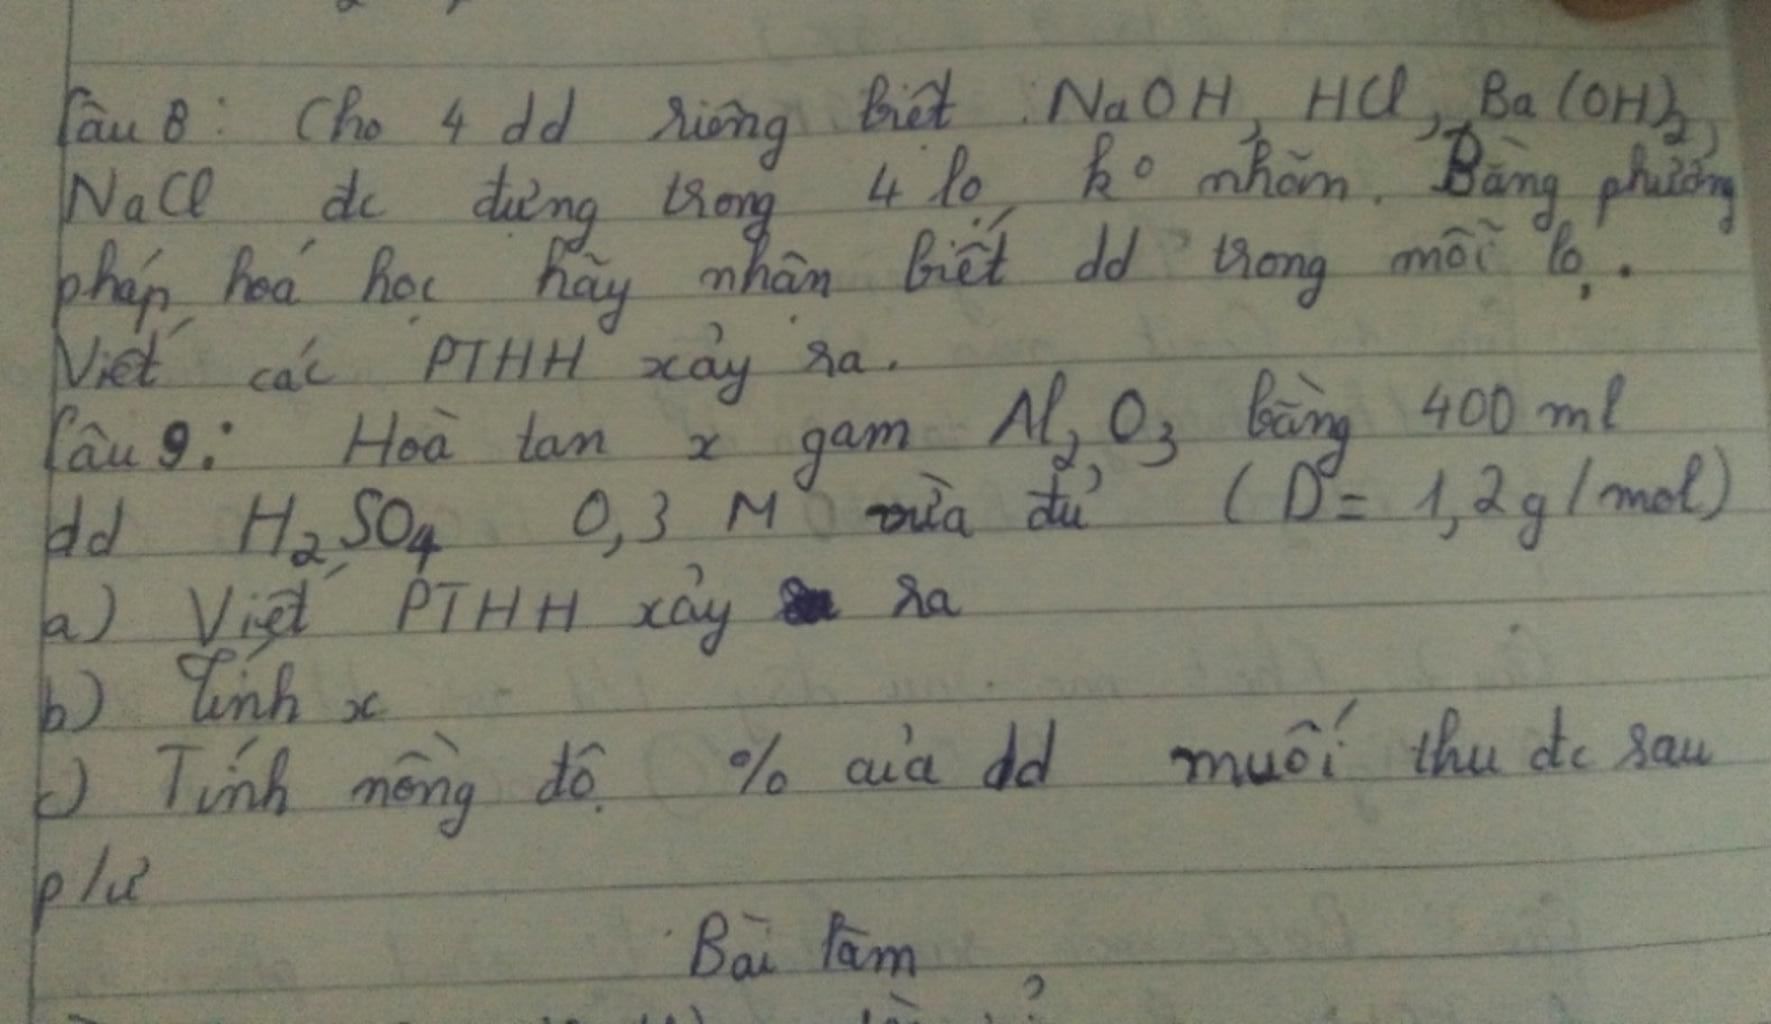 Câu 8: Cho 4 dd riêng biệt: NaOH, HCl, Ba(OH)₂,
NaCl đc đựng trong 4 lọ ko nhãn. Bằng phương
pháp hoá học hãy nhận biết dd trong mỗi lọ.
Viết các PTHH xảy ra.
Câu 9: Hoà tan x gam Al₂O₃ bằng 400 ml
dd H₂SO₄ 0,3 M vừa đủ (D = 1,2g/mol)
a) Viết PTHH xảy ra
b) Tính x
c) Tính nồng độ % của dd muối thu đc sau
p/ư
Bài làm